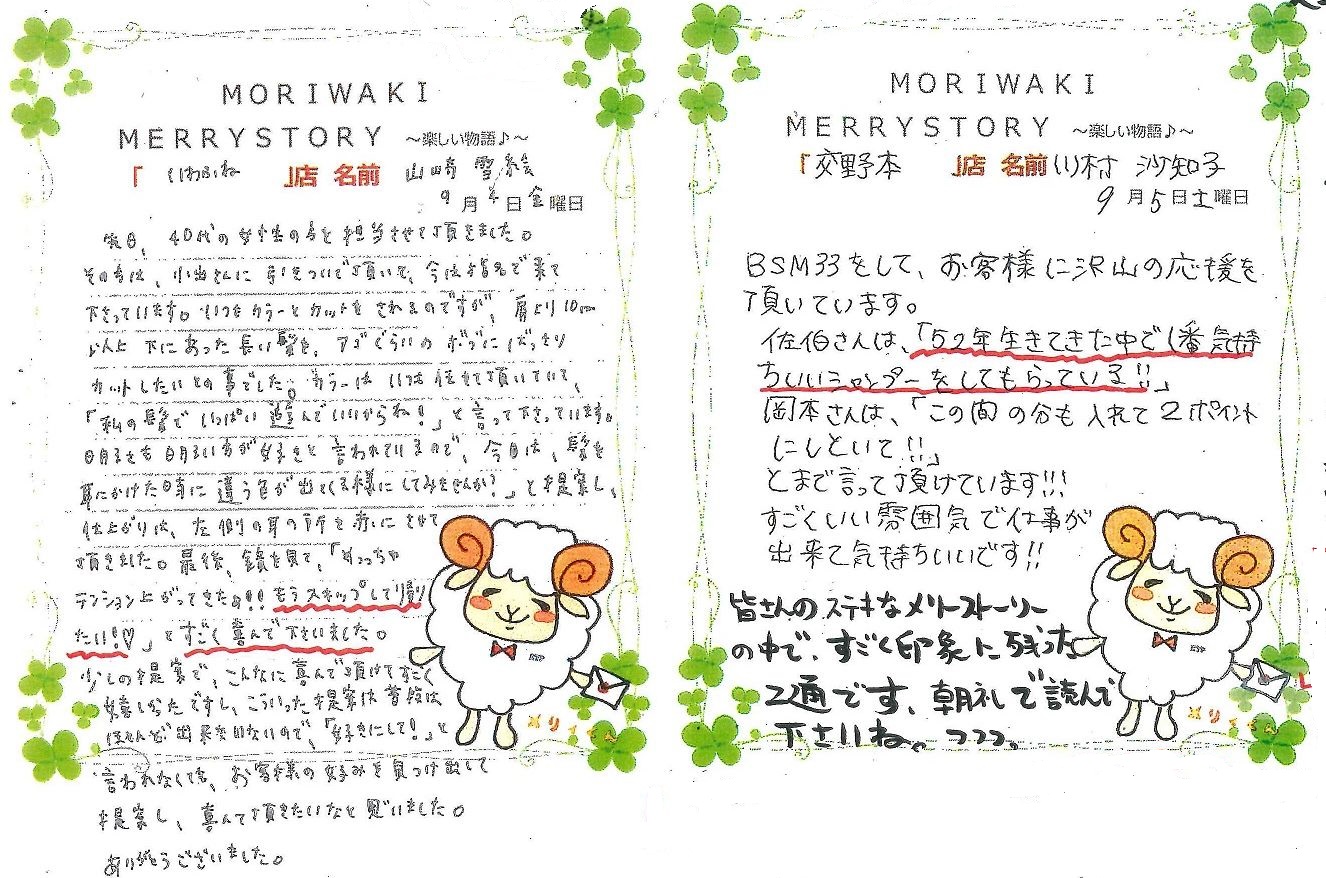 MORIWAKI
MERRYSTORY ～楽しい物語♪～
「 いわふね 」店 名前 山崎 雪絵
9月4日金曜日
先日、40代の女性の方を担当させて頂きました。
その方は、小出さんに引きついで頂いて、今は指名で来て
下さっています。いつもカラーとカットをされるのですが、肩より10cm
以上下にあった長い髪を、アゴぐらいのボブにばっさり
カットしたいとの事でした。カラーはいつも任せて頂いていて、
「私の髪でいっぱい遊んでいいからね!」と言って下さっています。
明るさも明るい方が好きと言われているので、今日は、髪を
耳にかけた時に違う色が出てくる様にしてみませんか?」と提案し、
仕上がりは、左側の耳の所を赤にさせて
頂きました。最後、鏡を見て、「めっちゃ
テンション上がってきたわ!!もうスキップして帰り
たい!♡」とすごく喜んで下さいました。
少しの提案で、こんなに喜んで頂けてすごく
嬉しかったですし、こういった提案は普段は
ほとんど出来ないので、「好きにして!」と
言われなくても、お客様の好みを見つけ出して
提案し、喜んで頂きたいなと思いました。
ありがとうございました。
メリイさん
MORIWAKI
MERRYSTORY ～楽しい物語♪～
「交野本 」店 名前 川村 沙知子
9月5日土曜日
BSM33をして、お客様に沢山の応援を
頂いています。
佐伯さんは、「52年生きてきた中で1番気持
ちいいシャンプーをしてもらっている!!」
岡本さんは、「この間の分も入れて2ポイント
にしといて!!」
とまで言って頂けています!!!
すごくいい雰囲気で仕事が
出来て気持ちいいです!!
皆さんのステキなメリーストーリー
の中で、すごく印象に残った
2通です、朝礼で読んで
下さいね。フフフ。
メリイさん